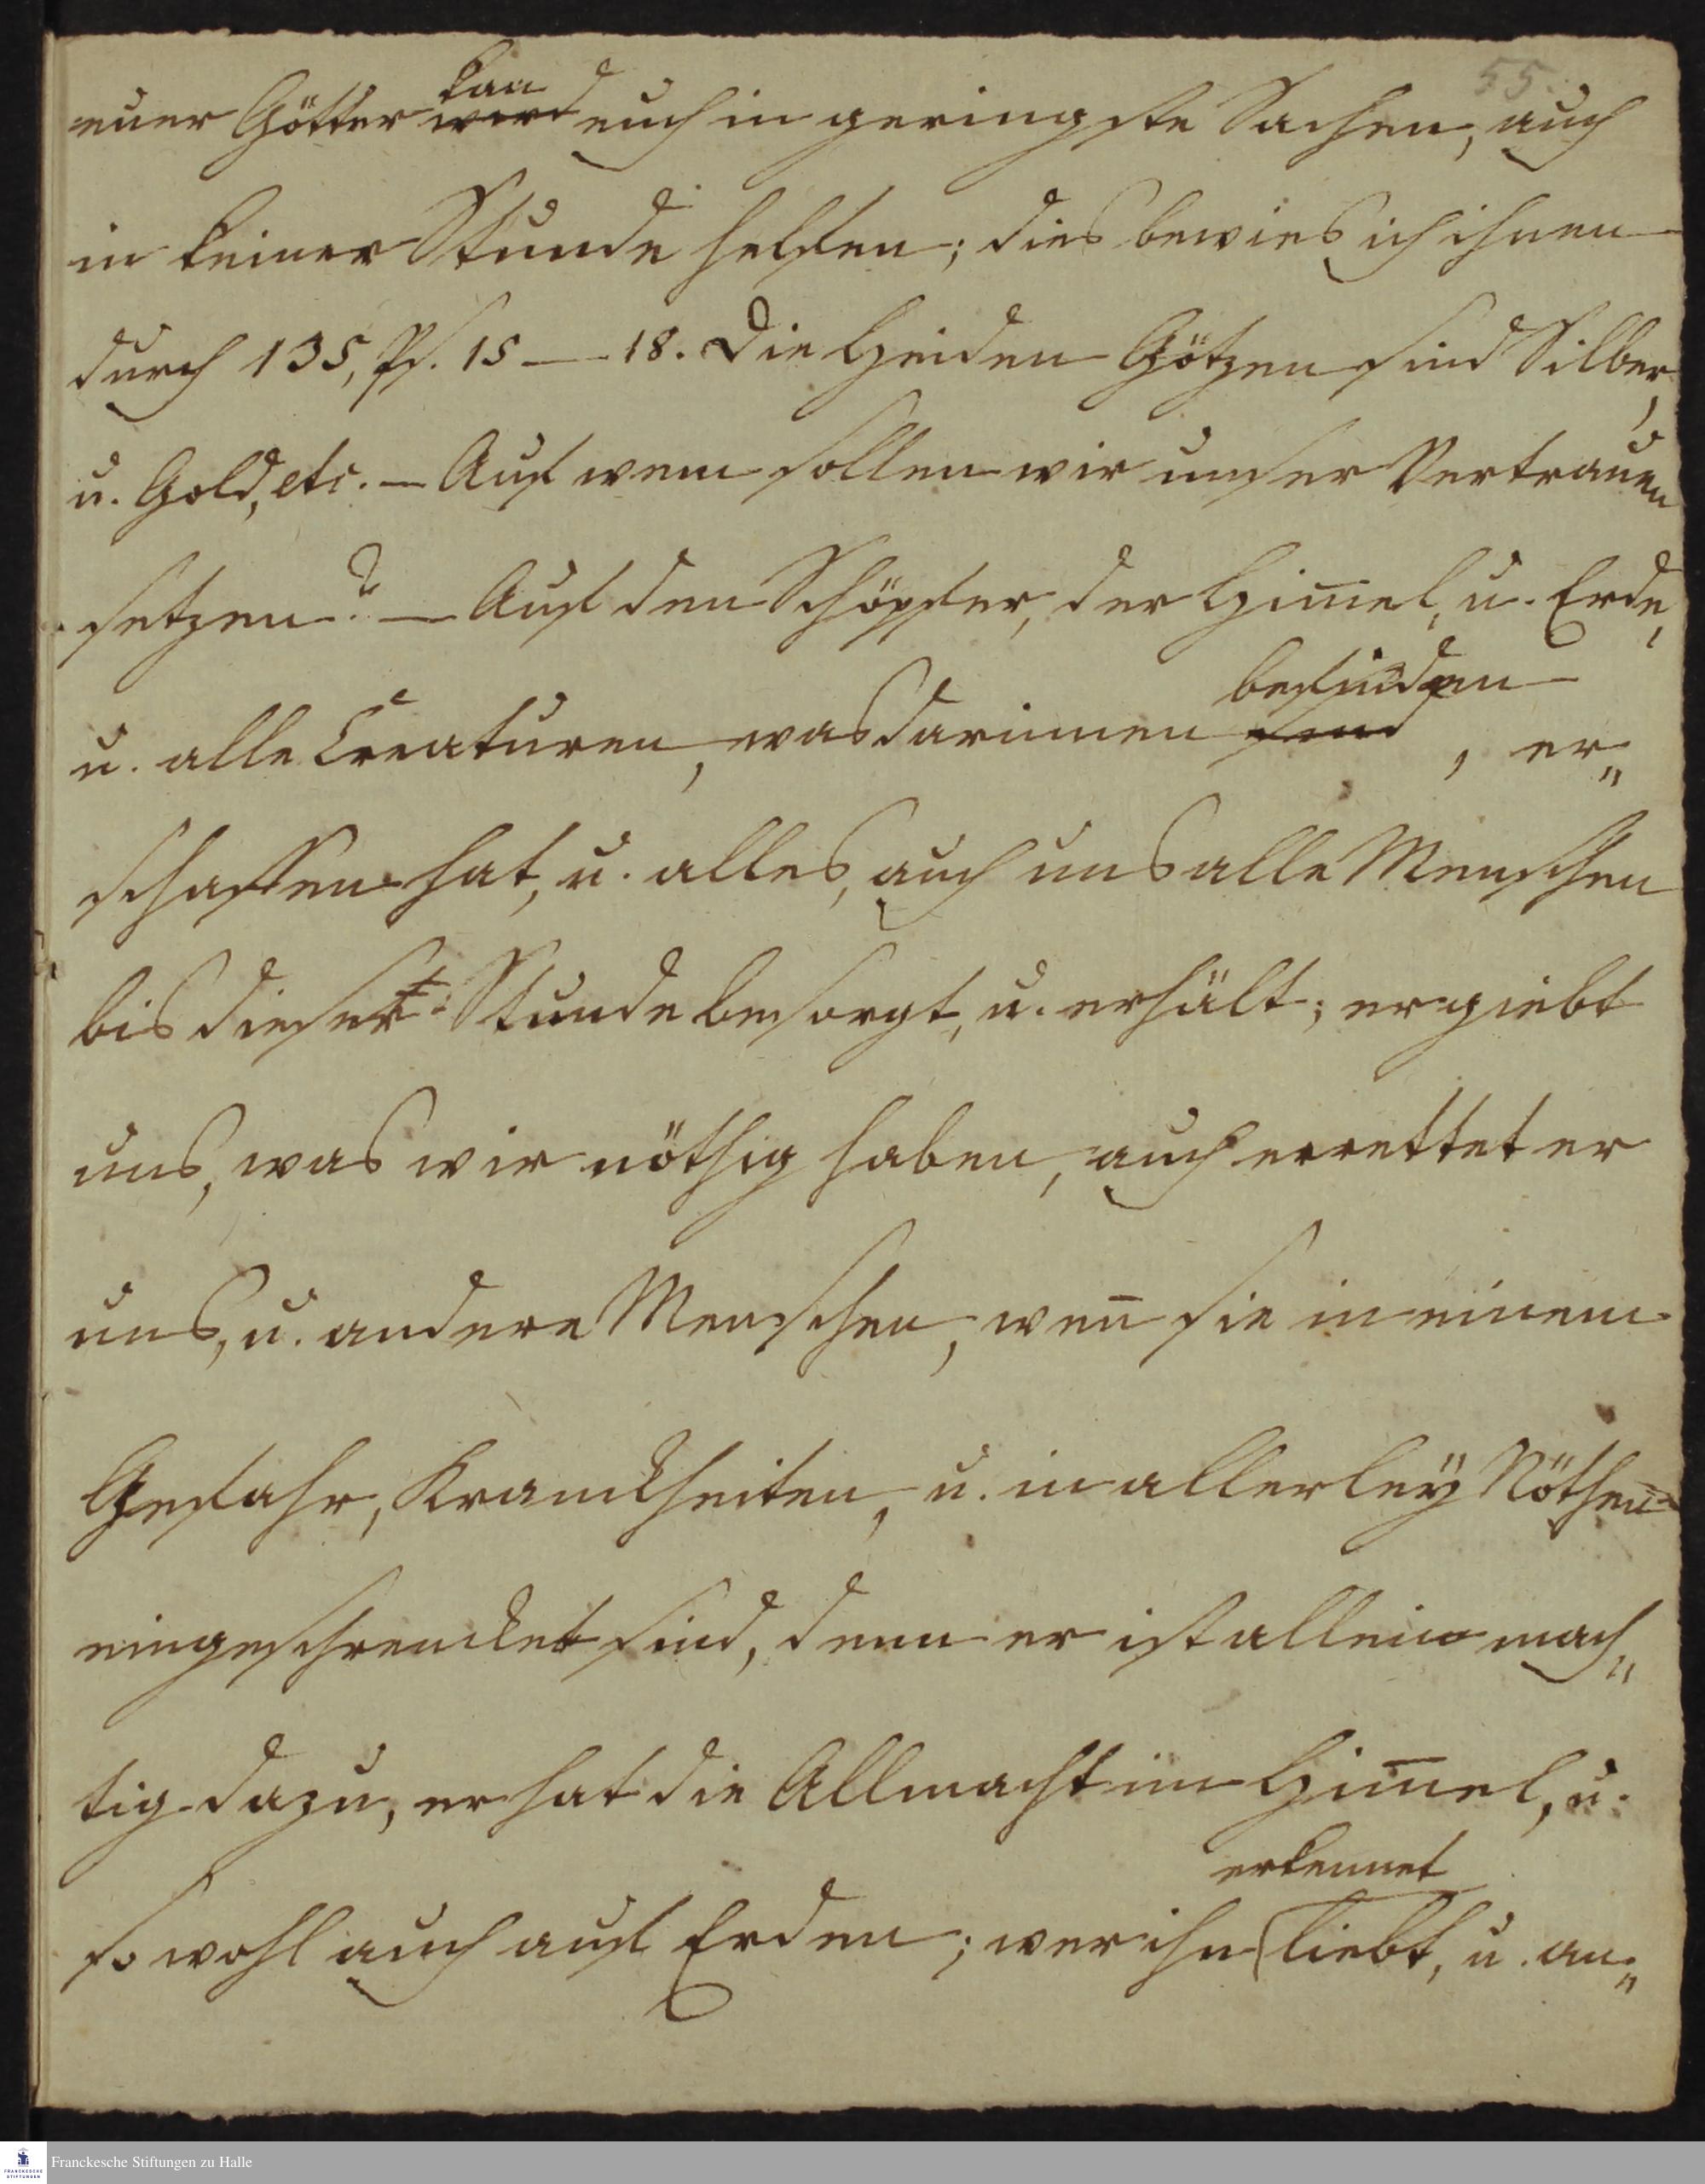 55.
kan
euer Götter wird euch in geringste Sachen, auch
in keiner Stunde helfen; dies bewies ich ihnen
durch 135, Ps. 15 — 18. Die Heiden Götzen sind Silber,
u. Gold, etc. — Auf wem sollen wir unser Vertrauen
setzen? — Auf den Schöpfer, der Him̄el, u. Erde,
befinden
u. alle Creaturen, was darinnen sind, er„
schaffen hat, u. alles, auch uns alle Menschen
bis dieser Stunde besorgt, u. erhält; er giebt
uns, was wir nöthig haben, auch errettet er
uns, u. andere Menschen, wen̄ sie in einem
Gefahr, Kranckheiten, u. in allerleÿ Nöthen
eingeschrencket sind, denn er ist allein mäch„
tig dazu, er hat die Allmacht im Him̄el, u.
erkennet
so wohl auch auf Erden; wer ihn liebt, u. an„
Franckesche Stiftungen zu Halle
FRANCKESCHE
STIFTUNGEN